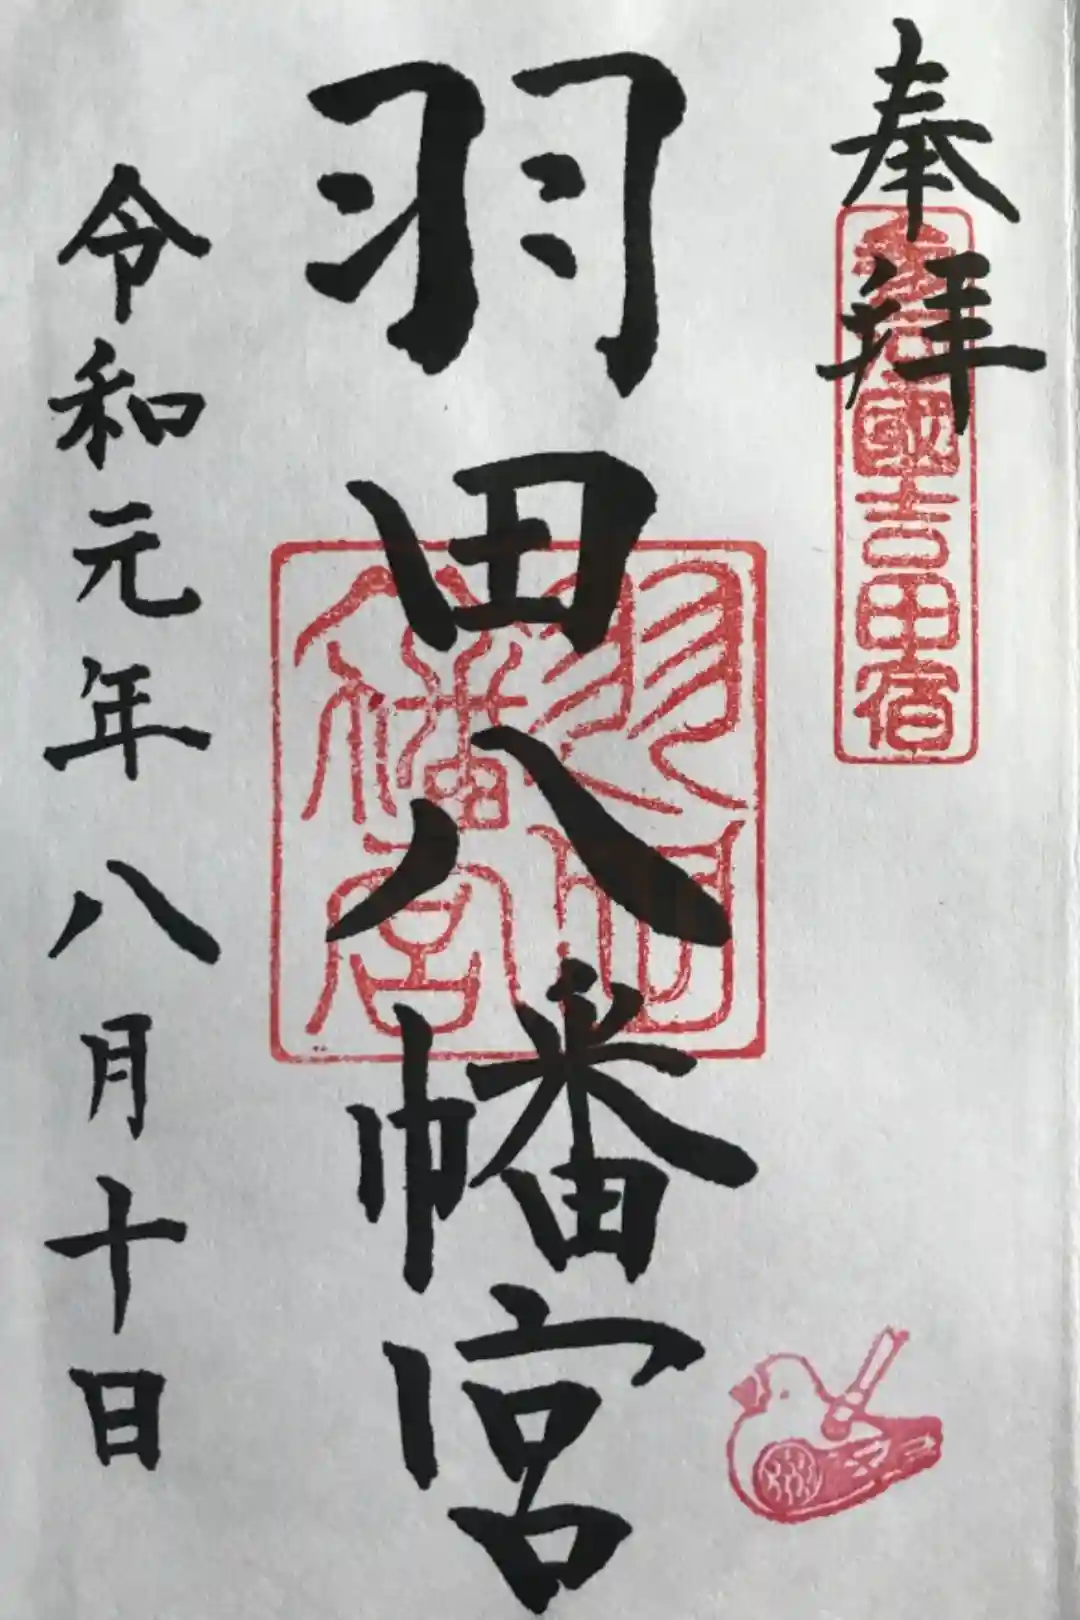 奉拝
参河國吉田宿
羽田八幡宮
羽田
八幡宮
令和元年八月十日